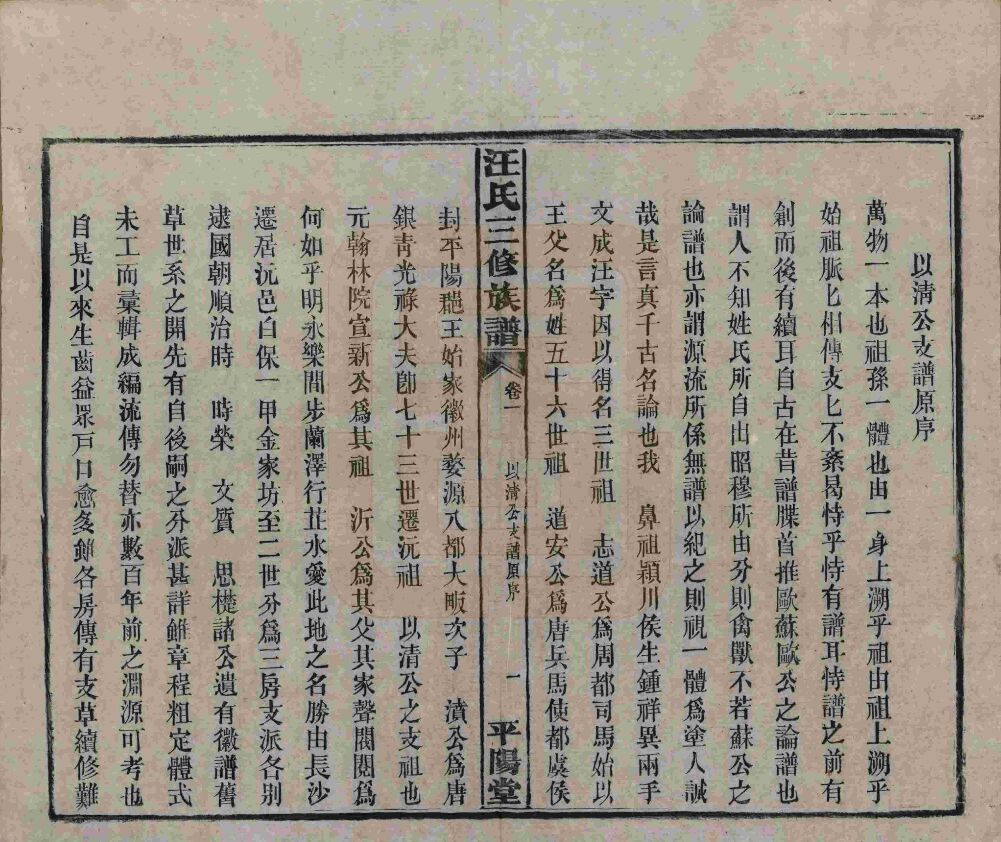 以清公支譜原序
萬物一本也祖孫一體也由一身上溯乎祖由祖上溯乎
始祖脈匕相傳支匕不紊曷恃乎恃有譜耳恃譜之前有
創而後有續耳自古在昔譜牒首推歐蘇歐公之論譜也
謂人不知姓氏所自出昭穆所由分則禽獸不若蘇公之
論譜也亦謂源流所係無譜以紀之則視一體爲塗人誠
哉是言真千古名論也我 鼻祖穎川侯生鍾祥異兩手
文成汪字因以得名三世祖 志道公爲周都司馬始以
王父名爲姓五十六世祖 道安公爲唐兵馬使都虞侯
汪氏三修族譜 卷一 以清公支譜原序 一 平陽堂
封平陽郡王始家徽州婺源八都大畈次子 濆公爲唐
銀青光祿大夫卽七十三世遷沅祖 以清公之支祖也
元翰林院宣新公爲其祖 沂公爲其父其家聲閥閱爲
何如乎明永樂間步蘭澤行芷水愛此地之名勝由長沙
遷居沅邑白保一甲金家坊至二世分爲三房支派各別
逮國朝順治時 時榮 文質 思楚諸公遺有徽譜舊
草世系之開先有自後嗣之分派甚詳雖章程粗定體式
未工而彙輯成編流傳勿替亦數百年前之淵源可考也
自是以來生齒益眾戸口愈多雖各房傳有支草續修難